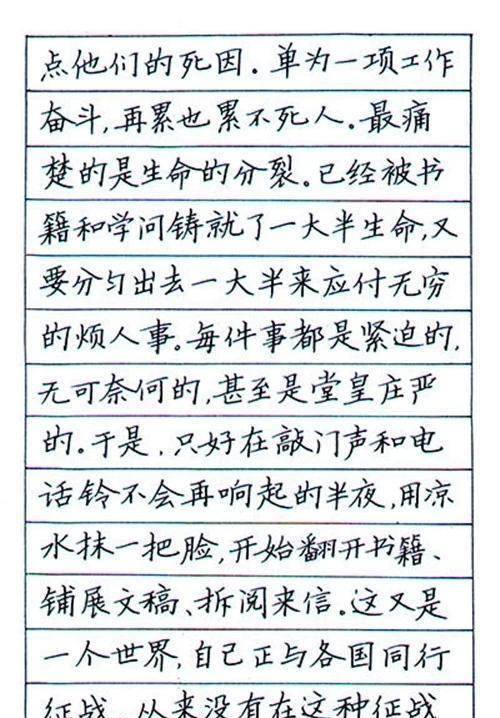 点他们的死因。单为一项工作
奋斗,再累也累不死人。最痛
楚的是生命的分裂。已经被书
籍和学问铸就了一大半生命,又
要分匀出去一大半来应付无穷
的烦人事。每件事都是紧迫的,
无可奈何的,甚至是堂皇庄严
的。于是,只好在敲门声和电
话铃不会再响起的半夜,用凉
水抹一把脸,开始翻开书籍、
铺展文稿、拆阅来信。这又是
一个世界,自己正与各国同行
征战,从来没有在这种征战